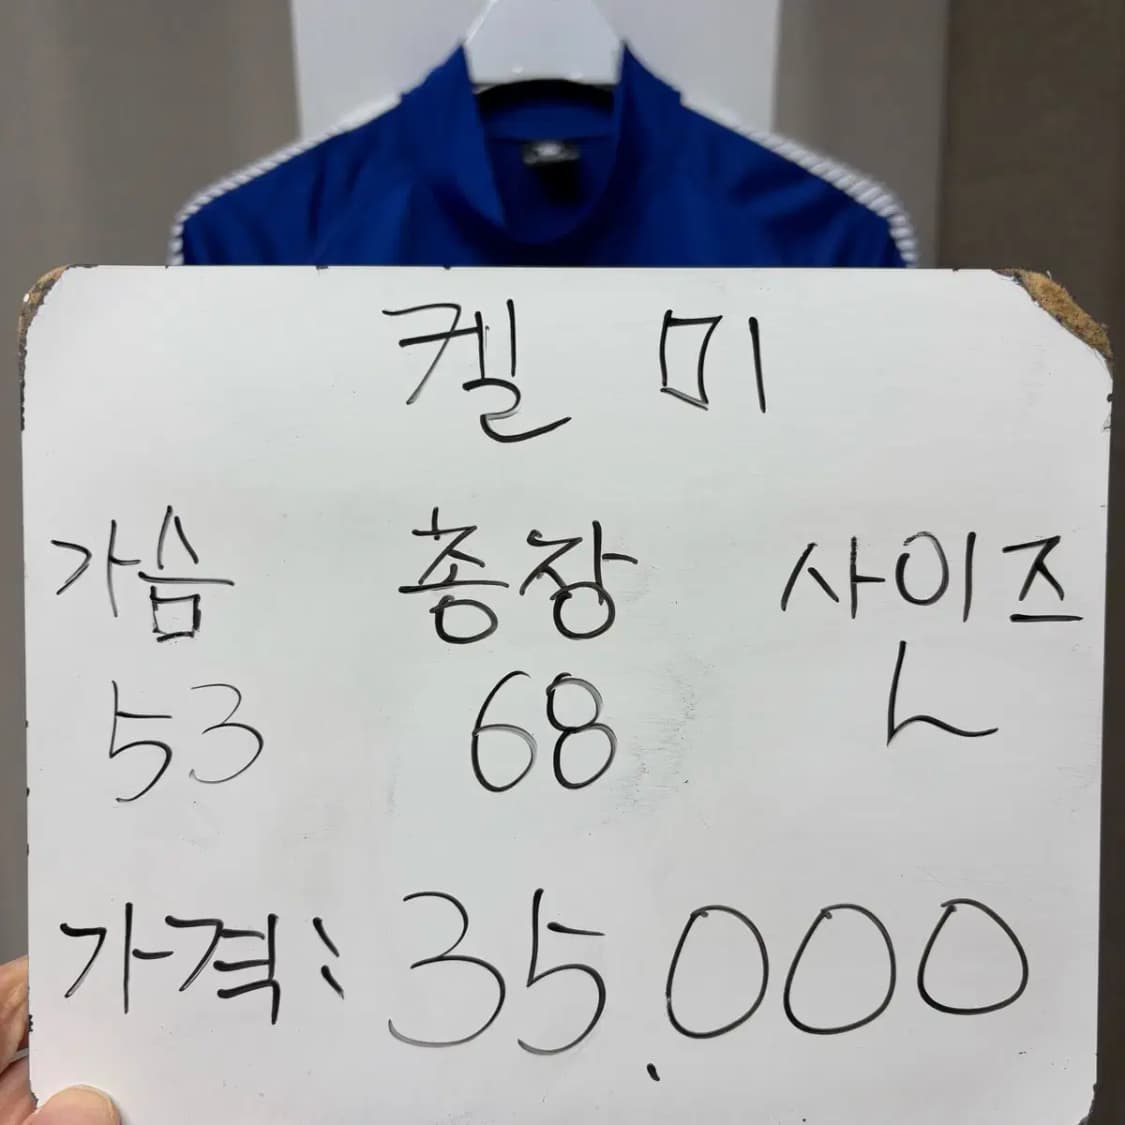 켈 미
가슴 총장 사이즈
53 68 L
가격: 35.000